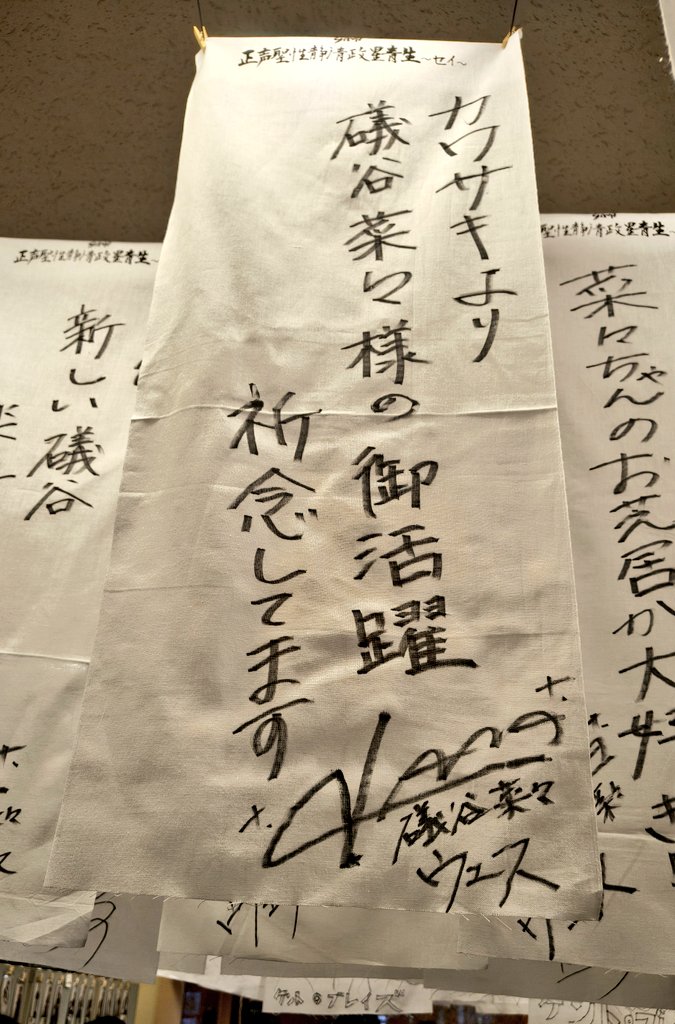 正声聖性静清政星青生〜セイ〜
カワサキより
磯谷菜々様の御活躍
祈念してます
Nana
磯谷菜々
ウエス
正声聖性静清政星青生
新しい磯谷
聖性静清政星青生〜セイ〜
菜々ちゃんのお芝居が大好き!
ゲット・ブレイズ